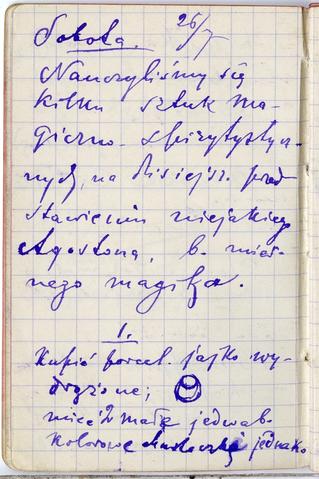 Sobota. 26/7
Nauczyliśmy się
kilku sztuk ma-
giczno-spirytystycz-
nych, na dzisiejsz. przed-
stawieniu niejakiego
Agostona, b. mier-
nego magika.
1.
Kupić porcel. jajko wy-
drążone;
mieć 2 małe jedwab.
kolorowe chusteczki jednako